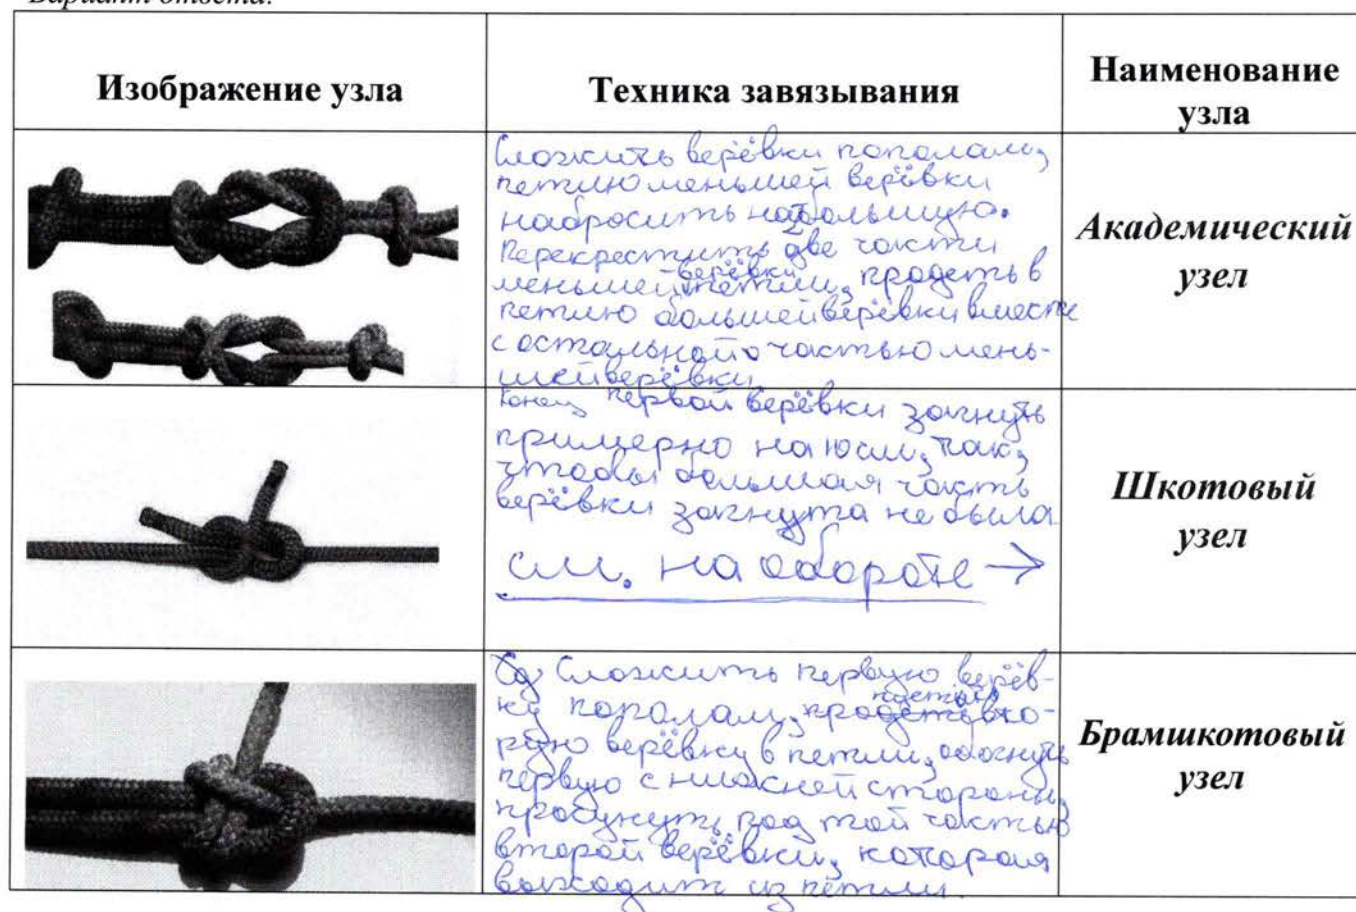 Вариант ответа:
Изображение узла
Техника завязывания
Наименование
узла
Сложить верёвки пополам,
петлю меньшей верёвки
набросить на большую.
Перекрестить две части
меньшей верёвки петли, продеть в
петлю большей верёвки вместе
с остальной частью мень-
шей верёвки
Академический
узел
Конец первой верёвки загнуть
примерно на 10 см, так,
чтобы большая часть
верёвки загнута не была
см. на обороте →
Шкотовый
узел
Сложить первую верёв-
ку пополам, вто-
рую верёвку в петлю, обогнуть
первую с нижней стороны,
просунуть под той частью
второй верёвки, которая
выходит из петли.
Брамшкотовый
узел